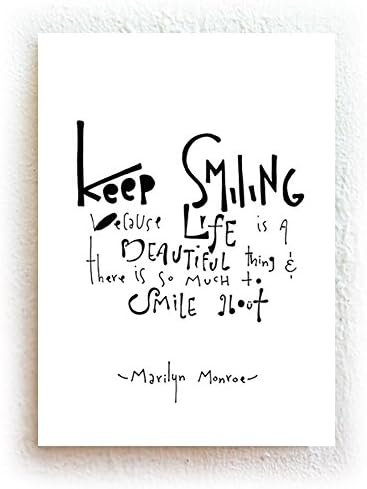 Keep SMiliNG
because Life is A
BEAUTIFUL thing &
there is so mucH to
SMiLE about
~Marilyn Monroe~